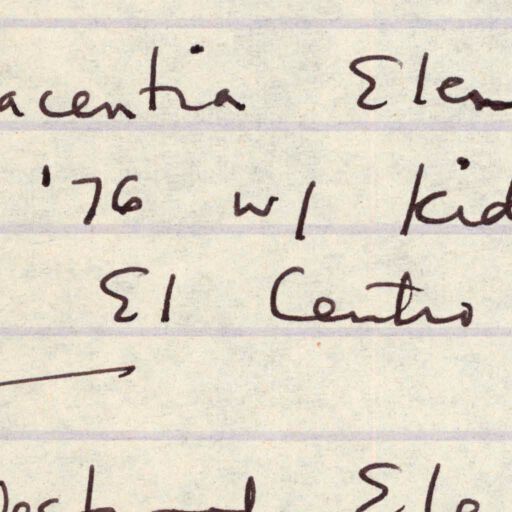 acentia Elem
'76 w/ kid
El Centro